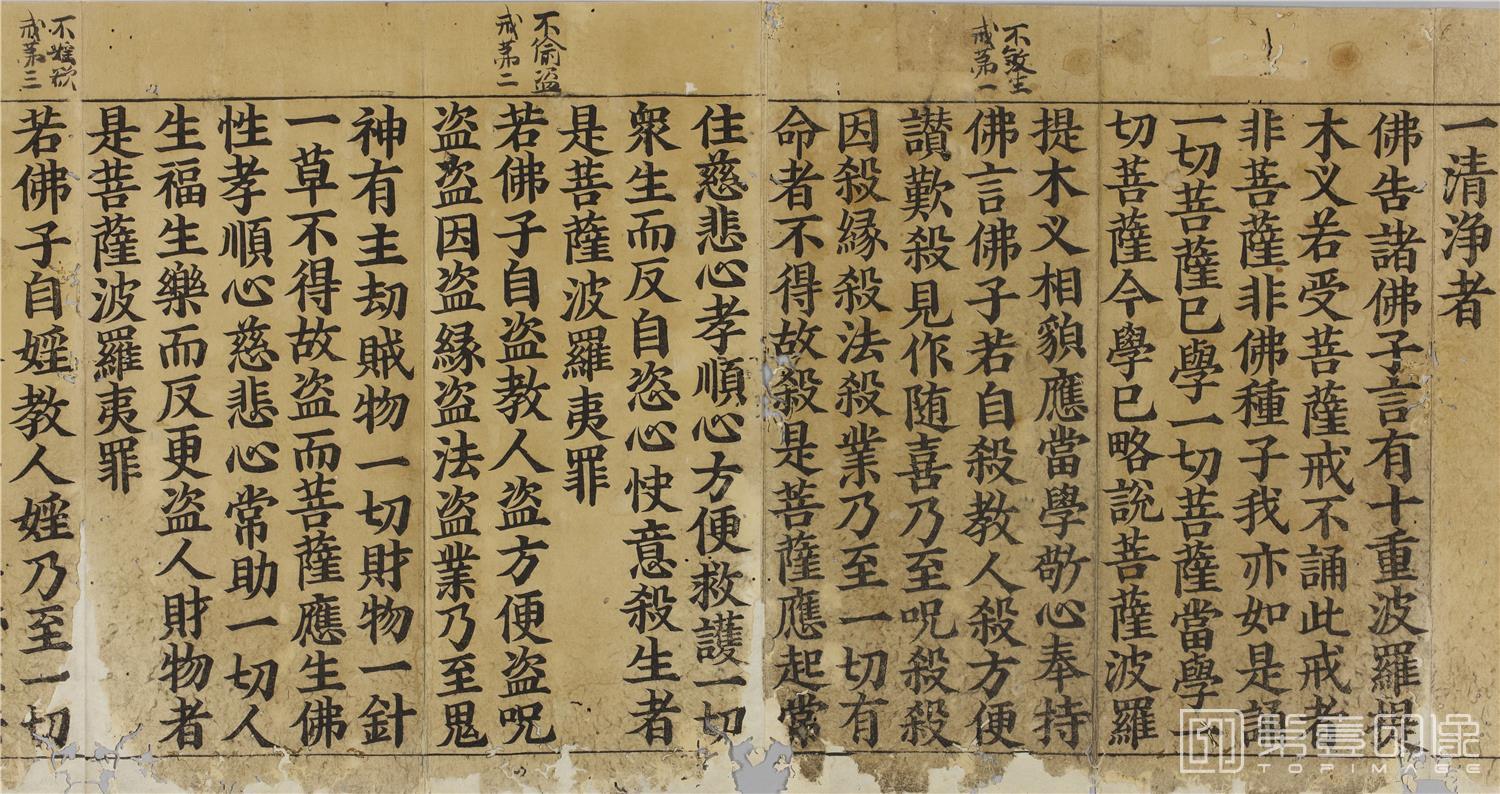 一清淨者
佛告諸佛子言有十重波羅提
木义若受菩薩戒不誦此戒者
非菩薩非佛種子我亦如是誦
一切菩薩已學一切菩薩當學一
切菩薩今學已略說菩薩波羅
不殺生
戒第一
提木义相貌應當學敬心奉持
佛言佛子若自殺教人殺方便
讃歎殺見作随喜乃至呪殺殺
因殺縁殺法殺業乃至一切有
命者不得故殺是菩薩應起常
住慈悲心孝順心方便救護一切
眾生而反自恣心快意殺生者
是菩薩波羅夷罪
不偷盗
戒第二
若佛子自盗教人盗方便盗呪
盗盗因盗縁盗法盗業乃至鬼
神有主劫賊物一切財物一針
一草不得故盗而菩薩應生佛
性孝順心慈悲心常助一切人
生福生樂而反更盗人財物者
是菩薩波羅夷罪
不婬欲
戒第三
若佛子自婬教人婬乃至一切
第壹印象
TOPIMAGE